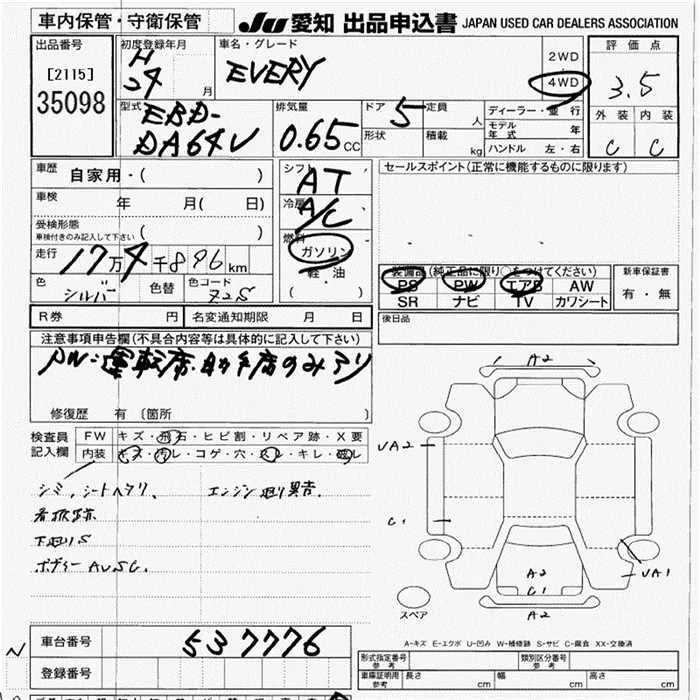 車内保管・守衛保管 JU 愛知 出品申込書 JAPAN USED CAR DEALERS ASSOCIATION
出品番号
[2115]
35098
初度登録年月
H
24 月
車名・グレード
EVERY
2WD
4WD
評価点
3.5
外装 内装
C C
型式
EBD-
DA64V
排気量
0.65 CC
ドア 5
形状
定員 人
積載 kg
ディーラー・並行
モデル年式 年
ハンドル 左・右
車歴 自家用・( )
車検 年 月( 日)
受検形態
車検付きのみ記入して下さい ( )
走行 17万4千896km
色 シルバー 色替 色コード Z2S
シフト AT
冷房 A/C
燃料 ガソリン
軽油
( )
セールスポイント(正常に機能するものに限ります)
装備品(純正品に限り○をつけてください)
PS PW エアB AW
SR ナビ TV カワシート
新車保証書
有・無
R券 円 名変通知期限 月 日
後日品
注意事項申告欄(不具合内容等は具体的に記入して下さい)
PW:運転席・助手席のみアリ
修復歴 有 〔箇所 〕
検査員
記入欄
FW キズ・飛石・ヒビ割・リペア跡・X要
内装 キズ・汚レ・コゲ・穴・スレ・キレ・破レ
シミ、シートヘタリ、 エンジン廻り異音.
看板跡
下廻りS
ボディー AUSC.
A2
UA2
C1
A2
C1
A2
UA1
スペア
A-キズ E-エクボ U-凹み W-補修跡 S-サビ C-腐食 XX-交換済
N
車台番号 537776
登録番号
形式指定番号 参考 類別区分番号 参考
車庫証明用 参考 長さ cm 幅 cm 高さ cm